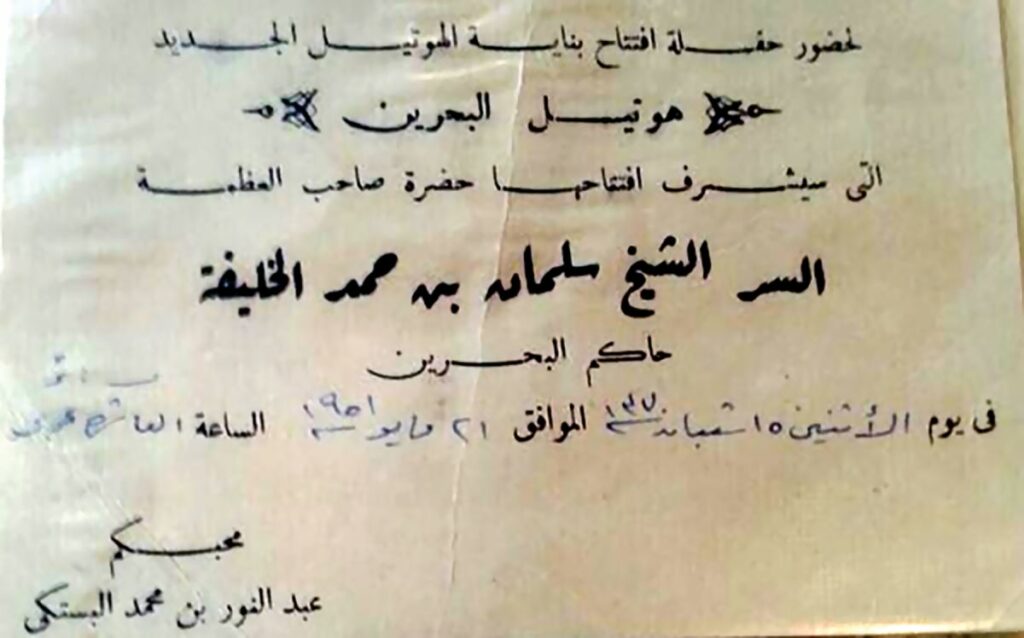 لحضور حفلة افتتاح بناية الهوتيل الجديد
هوتيل البحرين
التى سيشرف افتتاحها حضرة صاحب العظمة
السر الشيخ سلمان بن حمد الخليفة
حاكم البحرين
فى يوم الأثنين ١٥ شعبان ١٣٧٠ الموافق ٢١ مايو ١٩٥١ الساعة العاشرة
محبكم
عبد النور بن محمد البستكي